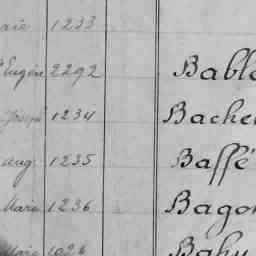 1233
Eugène 2292 Bable
Joseph 1234 Bache
Aug. 1235 Baffé
Marie 1236 Bago
Marie 1026 Bahu